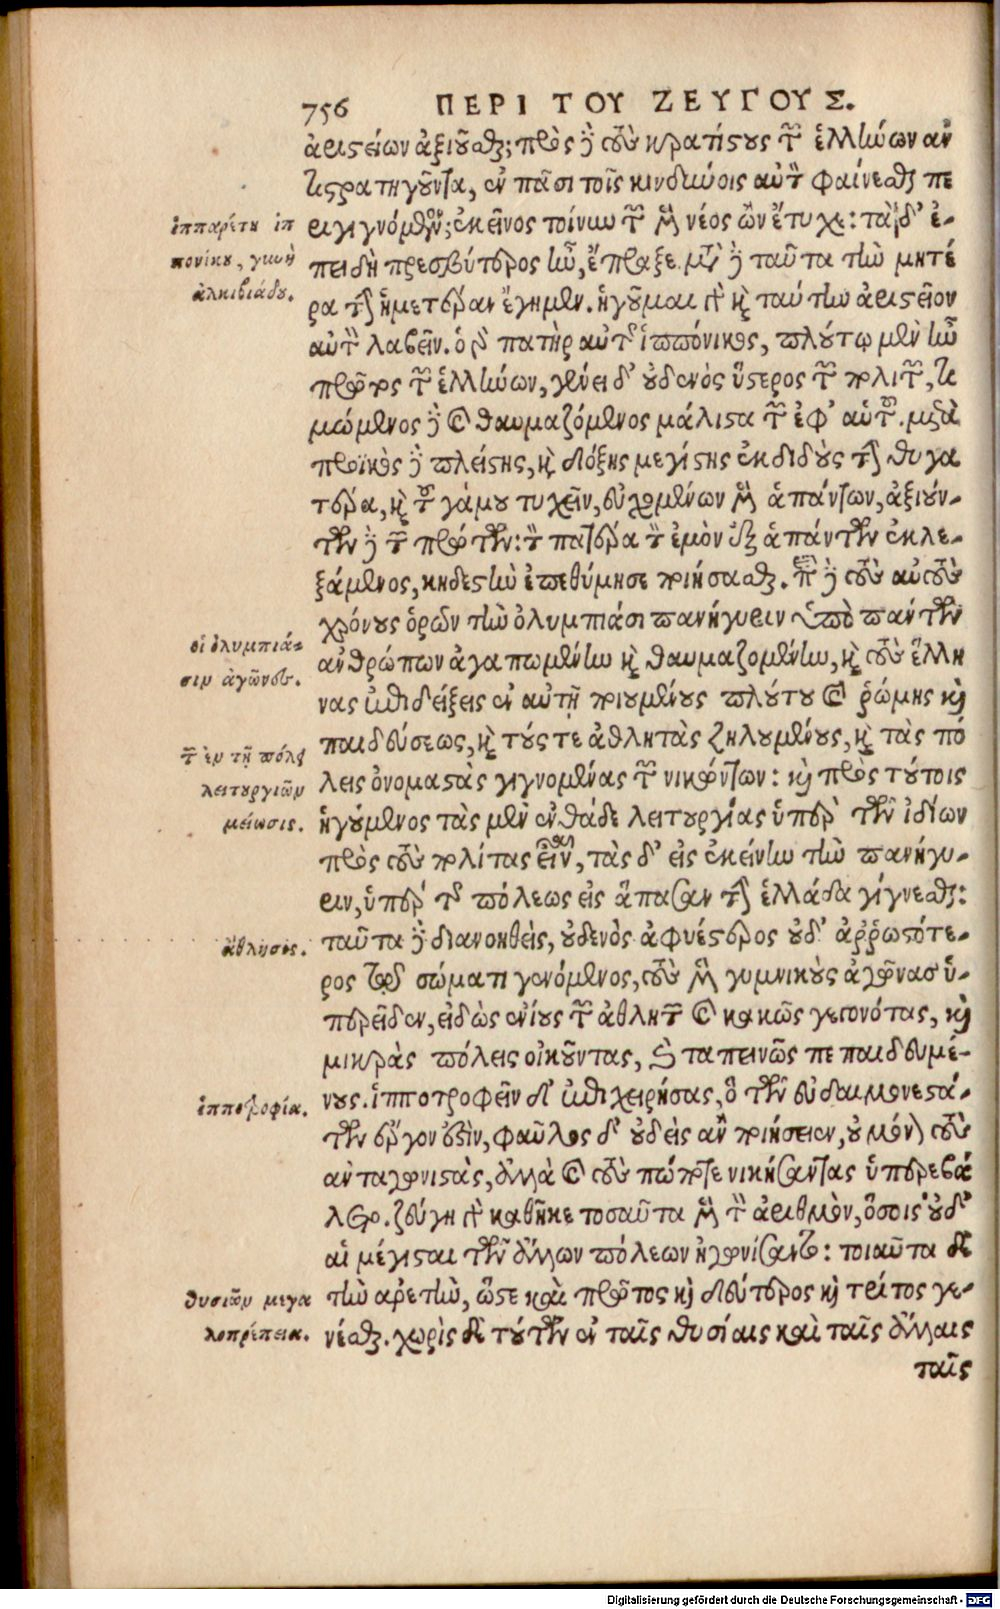 756 ΠΕΡΙ ΤΟΥ ΖΕΥΓΟΥΣ.
ἀριστείων ἀξιοῦσθαι; πρὸς δὲ τοὺς κρατίστους τῶν ἑλλήνων ἀν
τιστρατηγοῦντα, ἐν πᾶσι τοῖς κινδύνοις αὐτὸν φαίνεσθαι πε
ριγιγνόμενον; ἐκεῖνος τοίνυν τῶν μὲν νέος ὢν ἔτυχε: τὰ δ' ἐ-
πειδὴ πρεσβύτερος ἦν, ἔπραξε. μετὰ δὲ ταῦτα τὴν μητέ
ρα τὴν ἡμετέραν ἔγημεν. ἡγοῦμαι γὰρ καὶ ταύτην ἀριστεῖον
αὐτὸν λαβεῖν. ὁ γὰρ πατὴρ αὐτῆς ἱππόνικος, πλούτῳ μὲν ἦν
πρῶτος τῶν ἑλλήνων, γένει δ' οὐδενὸς ὕστερος τῶν πολιτῶν, τι
μώμενος δὲ καὶ θαυμαζόμενος μάλιστα τῶν ἐφ' αὑτοῦ. μετὰ
προικὸς δὲ πλείστης, καὶ δόξης μεγίστης ἐκδιδοὺς τὴν θυγα
τέρα, καὶ τοῦ γάμου τυχεῖν, εὐχομένων μὲν ἁπάντων, ἀξιούν-
των δὲ τῶν πρώτων: τὸν πατέρα τὸν ἐμὸν ἐξ ἁπάντων ἐκλε-
ξάμενος, κηδεστὴν ἐπεθύμησε ποιήσασθαι. περὶ δὲ τοὺς αὐτοὺς
χρόνους ὁρῶν τὴν ὀλυμπιάσι πανήγυριν ὑπὸ πάντων
ἀνθρώπων ἀγαπωμένην καὶ θαυμαζομένην, καὶ τοὺς ἕλλη
νας ἐπιδείξεις ἐν αὐτῇ ποιουμένους πλούτου καὶ ῥώμης καὶ
παιδεύσεως, καὶ τούς τε ἀθλητὰς ζηλουμένους, καὶ τὰς πό
λεις ὀνομαστὰς γιγνομένας τῶν νικώντων: καὶ πρὸς τούτοις
ἡγούμενος τὰς μὲν ἐνθάδε λειτουργίας ὑπὲρ τῶν ἰδίων
πρὸς τοὺς πολίτας εἶναι, τὰς δ' εἰς ἐκείνην τὴν πανήγυ-
ριν, ὑπὲρ τῆς πόλεως εἰς ἅπασαν τὴν ἑλλάδα γίγνεσθαι:
ταῦτα δὲ διανοηθεὶς, οὐδενὸς ἀφυέστερος οὐδ' ἀῤῥωστότε-
ρος τῷ σώματι γενόμενος, τοὺς μὲν γυμνικοὺς ἀγῶνας ὑ-
περεῖδεν, εἰδὼς ἐνίους τῶν ἀθλητῶν καὶ κακῶς γεγονότας, καὶ
μικρὰς πόλεις οἰκοῦντας, καὶ ταπεινῶς πεπαιδευμέ-
νους. ἱπποτροφεῖν δ' ἐπιχειρήσας, ὃ τῶν εὐδαιμονεστά-
των ἔργον ἐστὶν, φαῦλος δ' οὐδεὶς ἂν ποιήσειεν, οὐ μόνον τοὺς
ἀνταγωνιστὰς, ἀλλὰ καὶ τοὺς πώποτε νικήσαντας ὑπερεβά
λετο. ζεύγη γὰρ καθῆκε τοσαῦτα μὲν τὸν ἀριθμὸν, ὅσοις οὐδ'
αἱ μέγισται τῶν ἄλλων πόλεων ἠγωνίσαντο: τοιαῦτα δὲ
τὴν ἀρετὴν, ὥστε καὶ πρῶτος καὶ δεύτερος καὶ τρίτος γε-
νέσθαι. χωρὶς δὲ τούτων ἐν ταῖς θυσίαις καὶ ταῖς ἄλλαις
ταῖς
ἱππαρέτη ἱπ
πονίκου, γυνὴ
ἀλκιβιάδου.
οἱ ὀλυμπιά-
σιν ἀγῶνες.
τῶν ἐν τῇ πόλει
λειτουργιῶν
μείωσις.
ἄθλησις.
ἱπποτροφία.
θυσιῶν μεγα
λοπρέπεια.
Digitalisierung gefördert durch die Deutsche Forschungsgemeinschaft - DFG